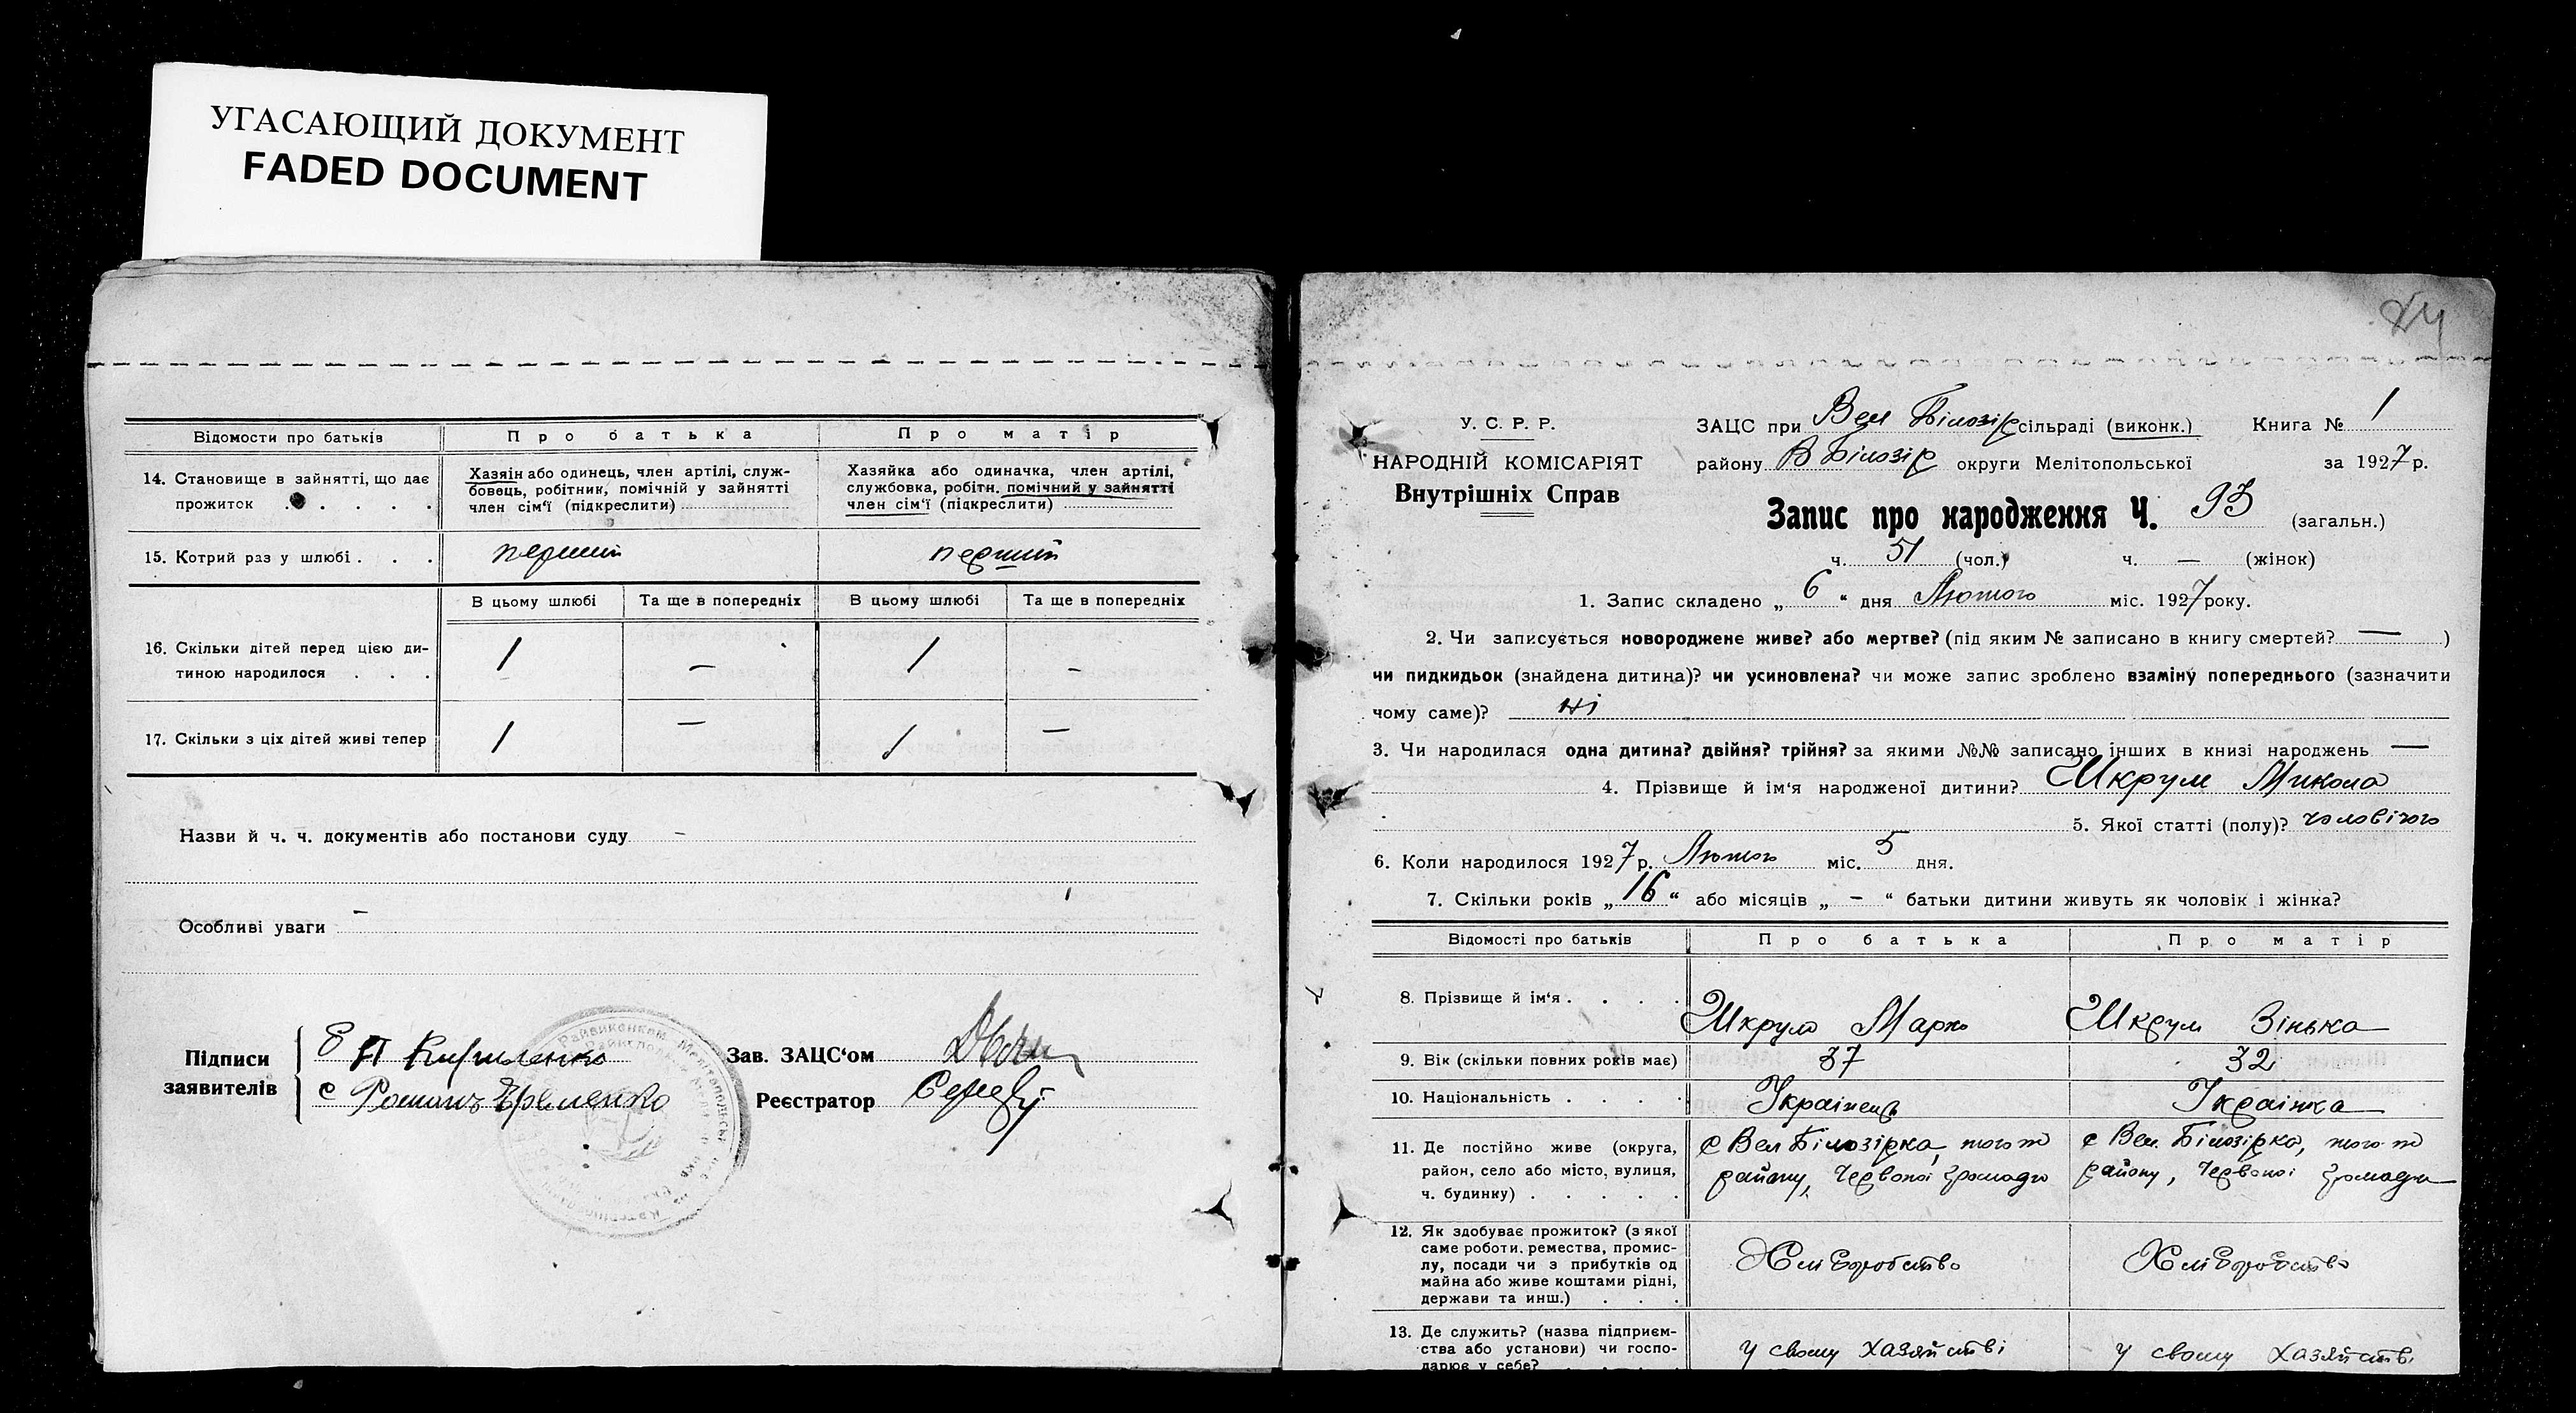 УГАСАЮЩИЙ ДОКУМЕНТ
FADED DOCUMENT
Відомости про батьків
Про батька
Про матір
14. Становище в зайнятті, що дає
прожиток . . . . .
Хазяін або одинець, член артілі, служ-
бовець, робітник, помічній у зайнятті
член сім‘ї (підкреслити)
Хазяйка або одиначка, член артілі,
службовка, робітн. помічний у зайнятті
член сім‘ї (підкреслити)
15. Котрий раз у шлюбі . . .
первший
первший
В цьому шлюбі
Та ще в попередніх
В цьому шлюбі
Та ще в попередніх
16. Скільки дітей перед цією ди-
тиною народилося . . .
1 — 1 —
17. Скільки з ціх дітей живі тепер
1 — 1 —
Назви й ч. ч. документів або постанови суду —
Особливі уваги —
Підписи
заявителів
П Кириленко
Романъ Еременко
Зав. ЗАЦС‘ом
Реєстратор
У. С. Р. Р.
НАРОДНІЙ КОМІСАРІЯТ
Внутрішніх Справ
ЗАЦС при Вел Білозір сільраді (виконк.) Книга № 1
району В Білозір округи Мелітопольської за 1927 р.
Запис про народження Ч. 93 (загальн.)
ч. 51 (чол.) ч. — (жінок)
1. Запис складено „ 6 “ дня Лютого міс. 1927 року.
2. Чи записується новороджене живе? або мертве? (під яким № записано в книгу смертей? — )
чи пидкидьок (знайдена дитина)? чи усиновлена? чи може запис зроблено взаміну попереднього (зазначити
чому саме)? ні
3. Чи народилася одна дитина? двійня? трійня? за якими №№ записано інших в книзі народжень —
4. Прізвище й ім‘я народженої дитини? Шкрум Микола
5. Якої статті (полу)? чоловічого
6. Коли народилося 1927 р. Лютого міс. 5 дня.
7. Скільки років „ 16 “ або місяців „ — “ батьки дитини живуть як чоловік і жінка?
Відомості про батьків
Про батька
Про матір
8. Прізвище й ім‘я . . . .
Шкрум Марко
Шкрум Зінька
9. Вік (скільки повних років має)
37
32
10. Національність . . . .
Українець
Українка
11. Де постійно живе (округа,
район, село або місто, вулиця,
ч. будинку) . . . . .
с Вел Білозірка, того ж
району, Червоної Громади
с Вел. Білозірка, того ж
району, Червоної Громади
12. Як здобуває прожиток? (з якої
саме роботи. ремества, промис-
лу, посади чи з прибутків од
майна або живе коштами рідні,
держави та инш.) . . .
Хліборобство
Хліборобство
13. Де служить? (назва підприєм-
ства або установи) чи госпо-
дарює у себе? . . . .
у свому хазяйстві
у свому хазяйстві